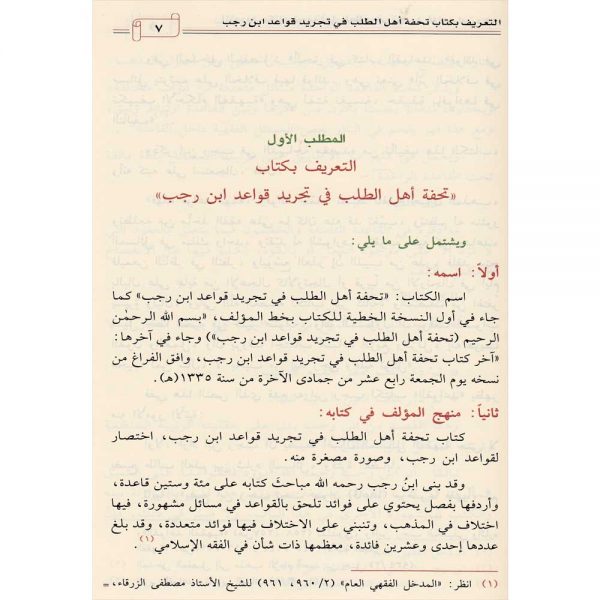 التعريف بكتاب تحفة أهل الطلب في تجريد قواعد ابن رجب
٧
المطلب الأول
التعريف بكتاب
«تحفة أهل الطلب في تجريد قواعد ابن رجب»
ويشتمل على ما يلي:
أولاً: اسمه:
اسم الكتاب: «تحفة أهل الطلب في تجريد قواعد ابن رجب» كما
جاء في أول النسخة الخطية للكتاب بخط المؤلف، «بسم الله الرحمٰن
الرحيم (تحفة أهل الطلب في تجريد قواعد ابن رجب»)) وجاء في آخرها:
«آخر كتاب تحفة أهل الطلب في تجريد قواعد ابن رجب، وافق الفراغ من
نسخه يوم الجمعة رابع عشر من جمادى الآخرة من سنة ١٣٣٥(هـ).
ثانياً: منهج المؤلف في كتابه:
كتاب تحفة أهل الطلب في تجريد قواعد ابن رجب، اختصار
لقواعد ابن رجب، وصورة مصغرة منه.
وقد بنى ابنُ رجب رحمه الله مباحثَ كتابه على مئة وستين قاعدة،
وأردفها بفصل يحتوي على فوائد تلحق بالقواعد في مسائل مشهورة، فيها
اختلاف في المذهب، وتنبني على الاختلاف فيها فوائد متعددة، وقد بلغ
عددها إحدى وعشرين فائدة، معظمها ذات شأن في الفقه الإسلامي(١).
(١) انظر: «المدخل الفقهي العام» (٢/ ٩٦٠، ٩٦١) للشيخ الأستاذ مصطفى الزرقاء، =